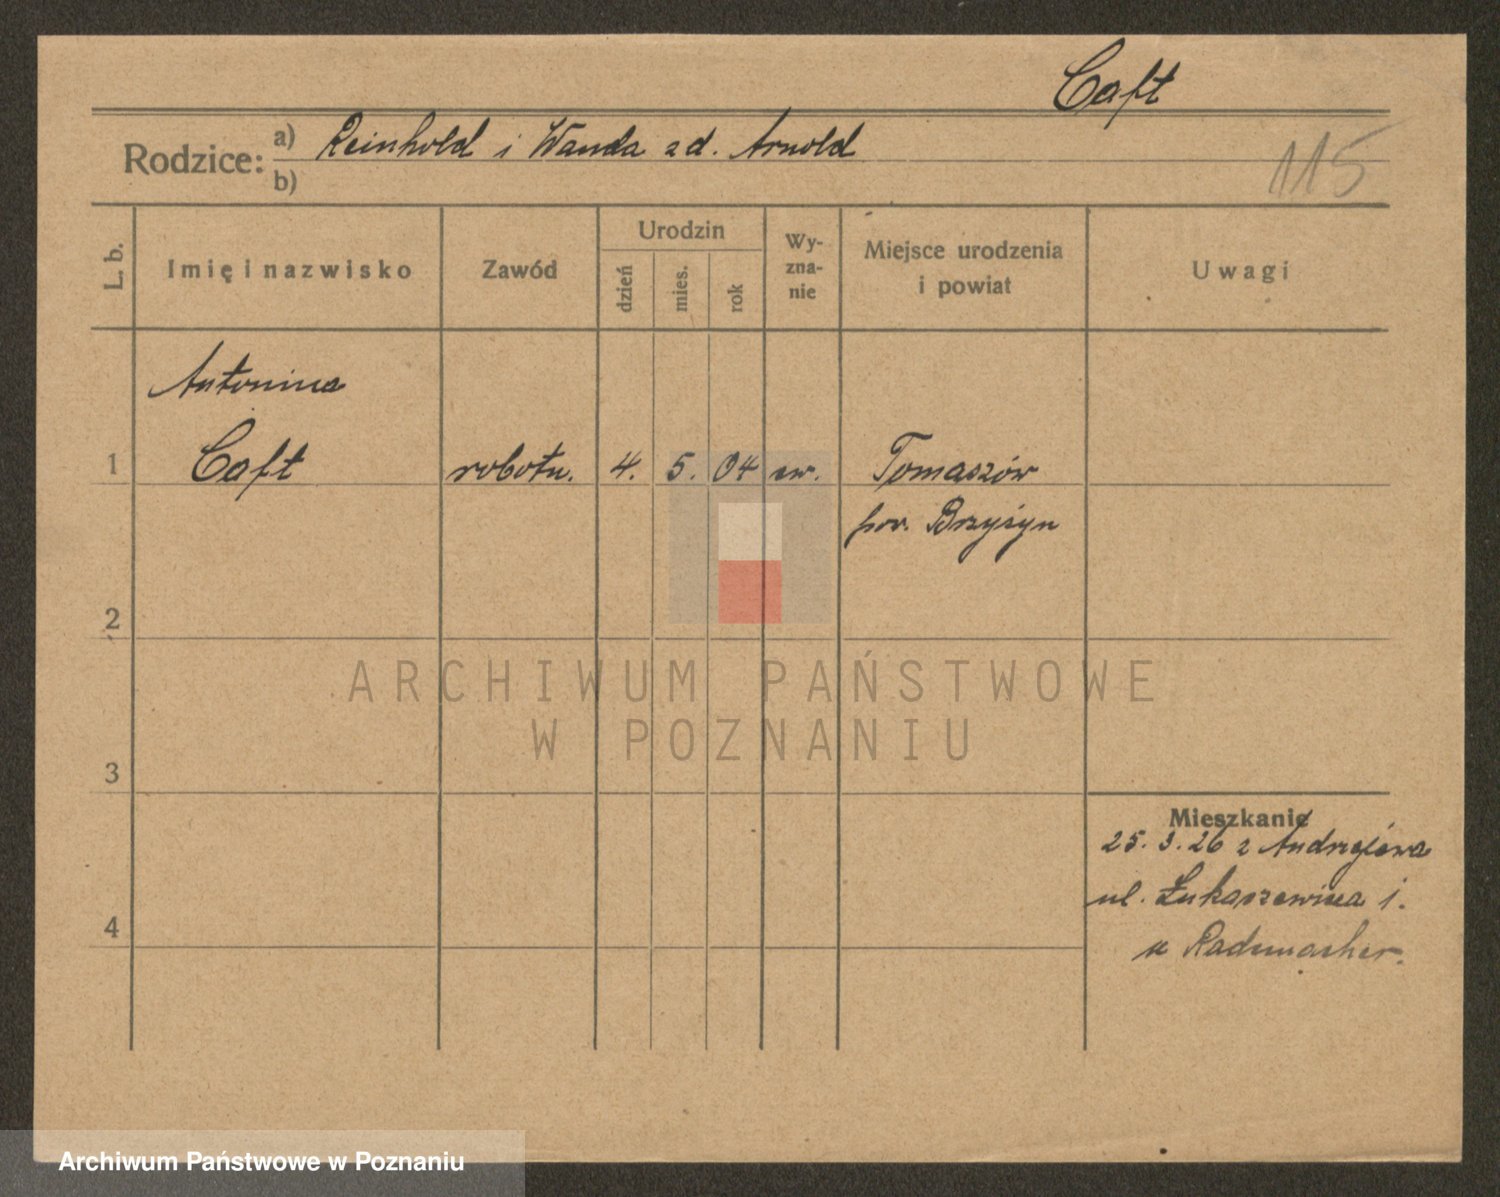 Caft
Rodzice: a) Reinhold i Wanda zd. Arnold
b)
115
L. b.
Imię i nazwisko
Zawód
Urodzin
dzień
mies.
rok
Wy-
zna-
nie
Miejsce urodzenia
i powiat
Uwagi
Antonina
1 Caft robotn. 4. 5. 04 ew. Tomaszów
pow. Brzyzyn
2
ARCHIWUM PAŃSTWOWE
W POZNANIU
3
Mieszkanie
25. 3. 26 z Andrzejewa
ul. Łukaszewicza 1.
u Radumacher.
4
Archiwum Państwowe w Poznaniu